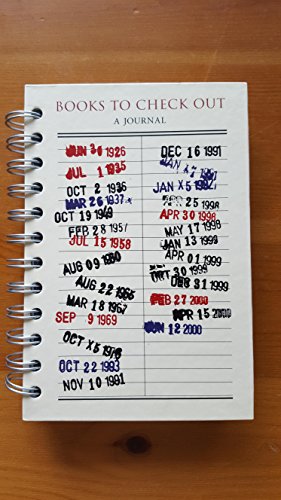 BOOKS TO CHECK OUT
A JOURNAL
JUN 30 1926
JUL 1 1935
OCT 2 1936
MAR 26 1937
OCT 19 1949
FEB 28 195
JUL 15 1958
AUG 09 1960
AUG 22 1965
MAR 18 1967
SEP 9 1969
OCT X5 1976
OCT 22 1983
NOV 10 1991
DEC 16 1991
JAN
JAN X5 1992
APR 25 1996
APR 30 1998
MAY 17 1998
JAN 13 1999
APR 01 1999
OCT 30 1999
DEC 31 1999
FEB 27 2000
APR 15 2000
JUN 12 2000